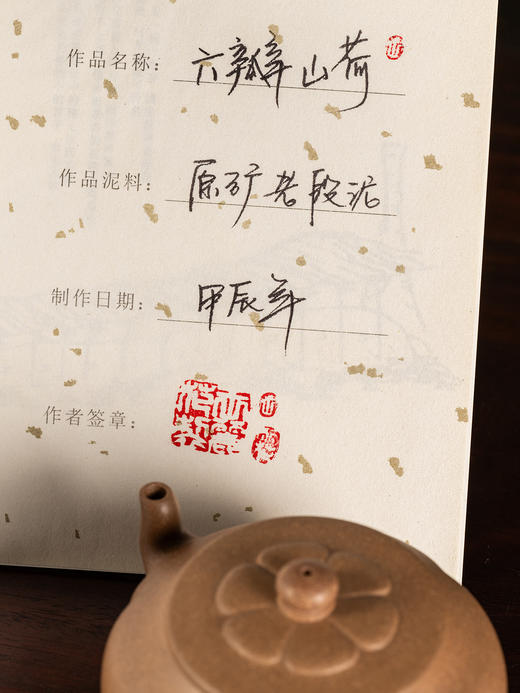 作品名称：六瓣山荷
作品泥料：原矿老段泥
制作日期：甲辰年
作者签章：